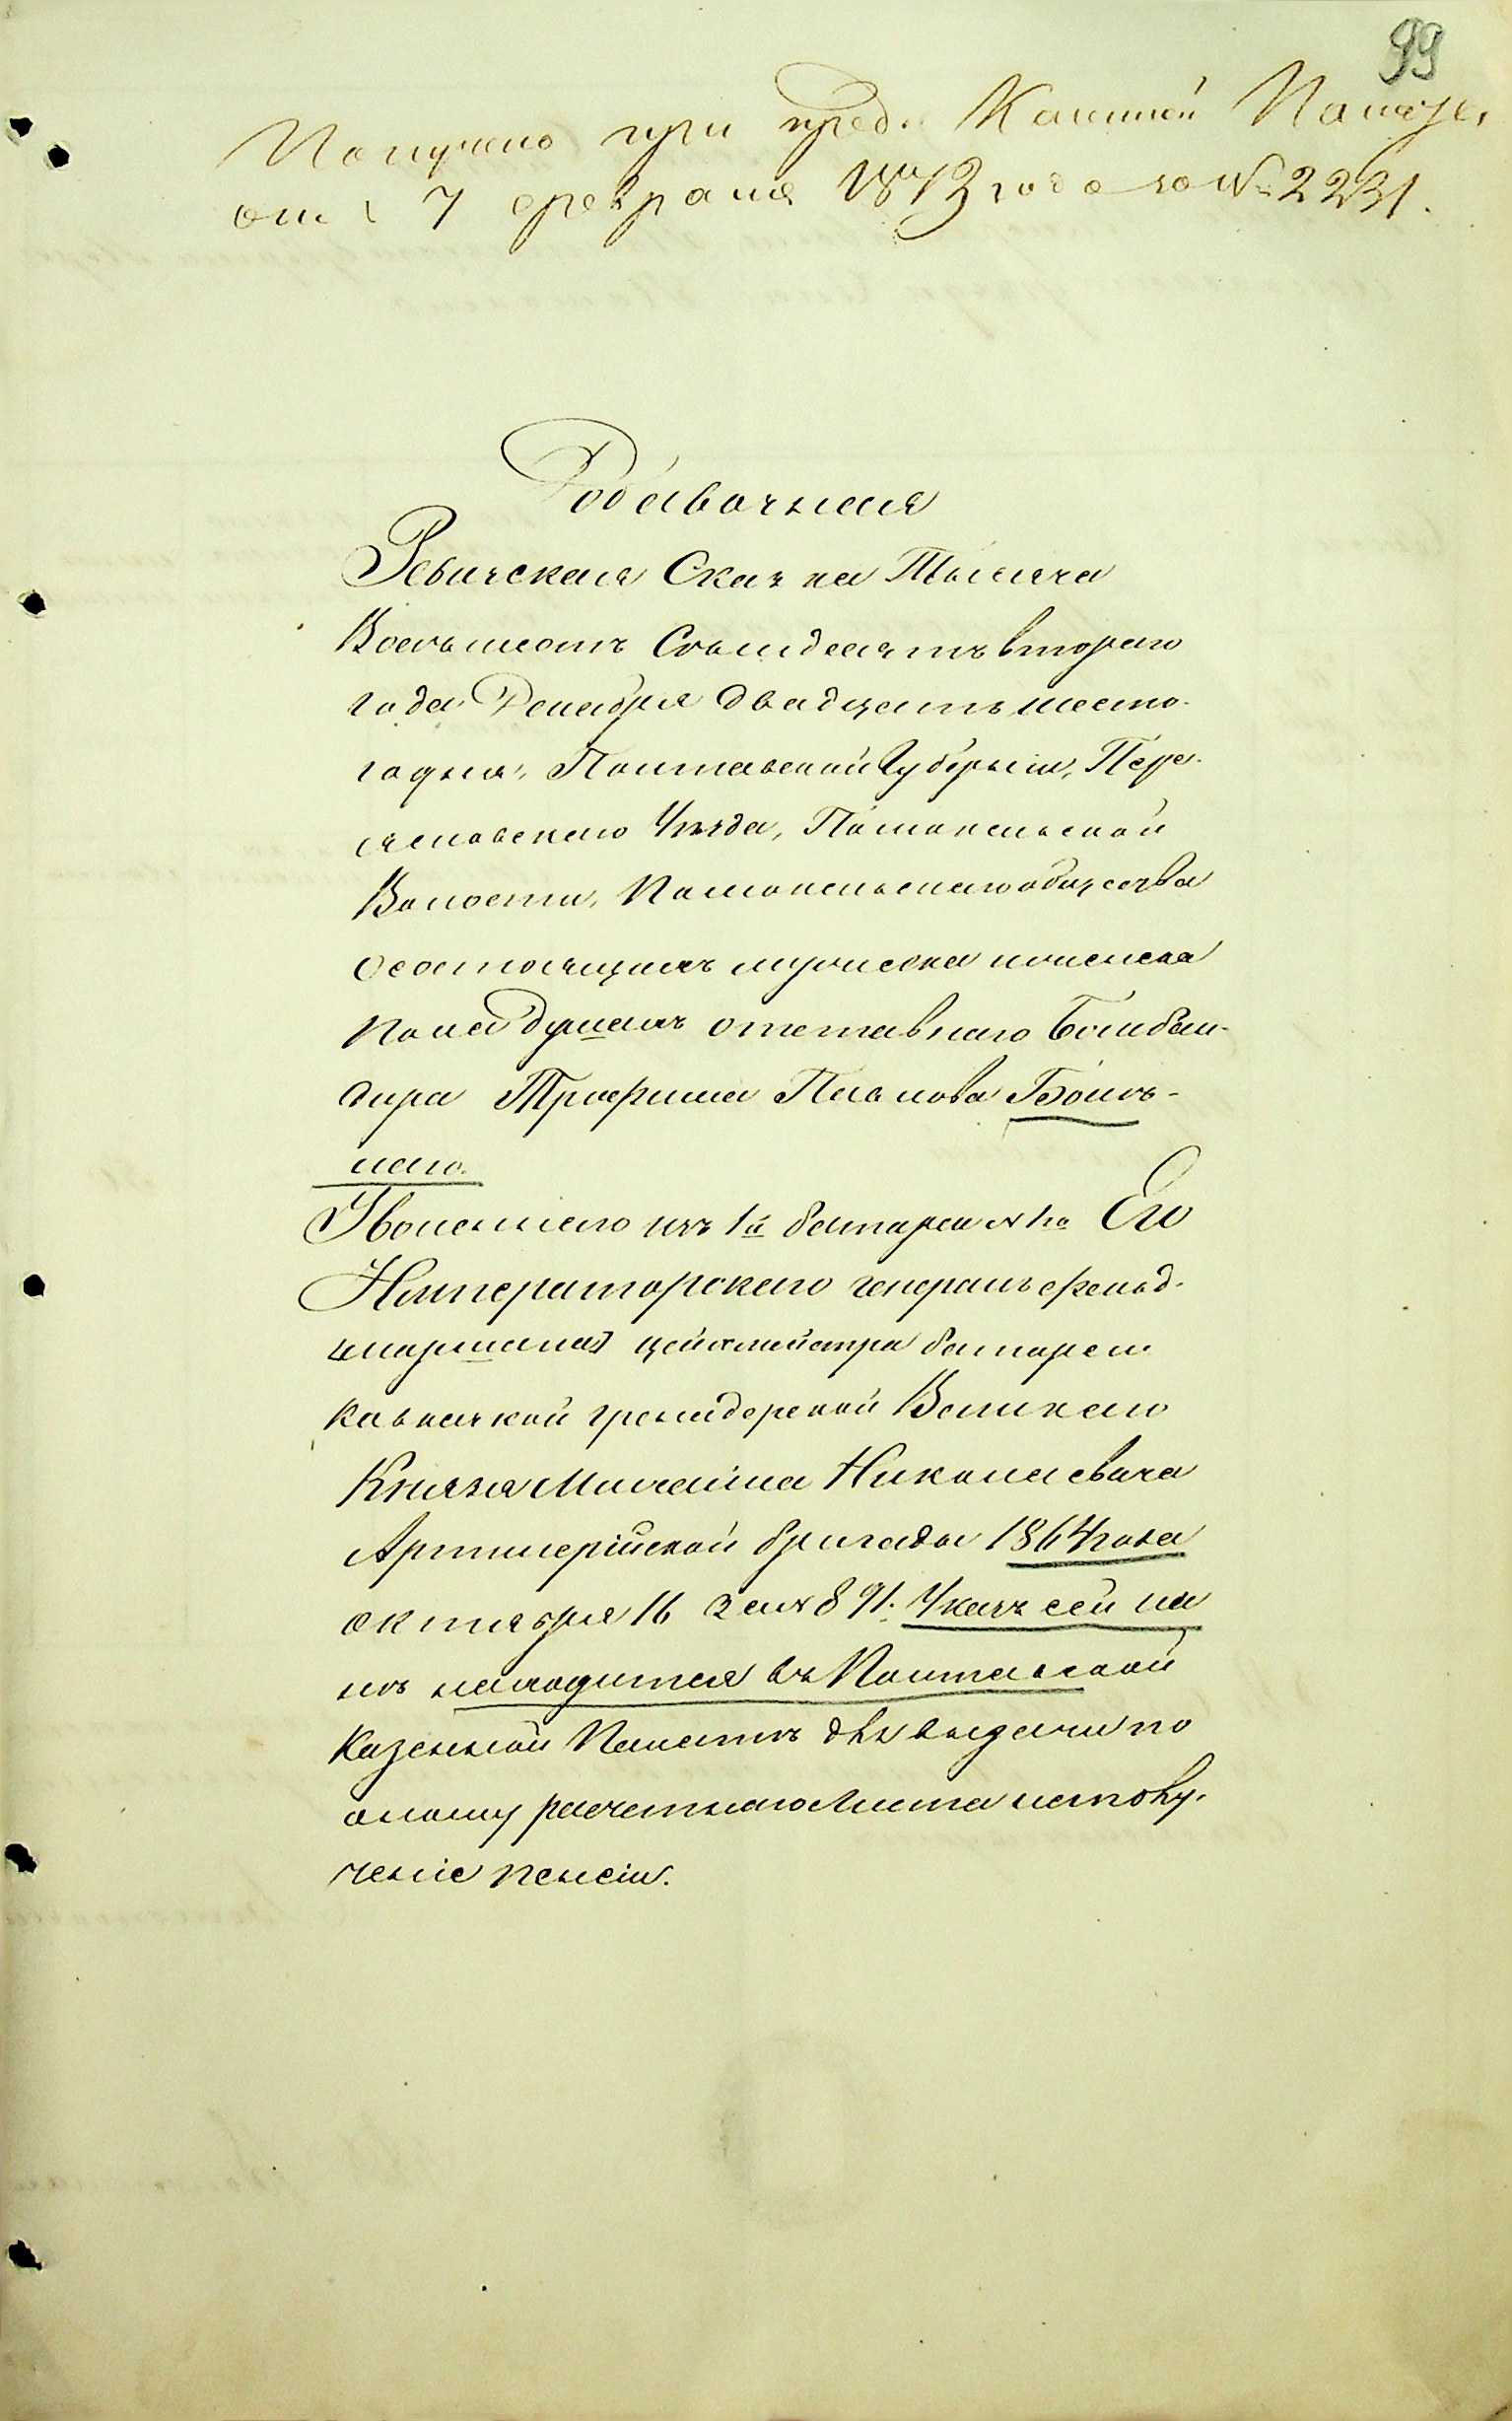 99
Получено при пред. Казенной Палаты,
от 7 февраля 1873 года за № 2231.
Добавочная
Ревизская Сказка Тысяча
Восемьсотъ Семдесятъ втораго
года Декабря двадцать шесто-
го дня, Полтавской Губерніи, Пере-
яславскаго Уезда, Помокельской
Волости, Помокельскаго общества
о состоящихъ мужеска и женска
пола душахъ отставнаго Бомбан-
дира Трофима Павлова Боинъ-
наго.
Уволеннаго изъ 1й батареи Его
Императорскаго генералъ фельд-
цмаршала цейхмейстра батареи
Кавказкой гренадерской Великаго
Князя Михаила Николаевича
Артилерійской бригады 1864 года
октября 16 за № 891. Указъ сей на
находится въ Полтавской
Казенной Палатъ для выдачи по
оному расчетнаго листа на полу-
ченіе пенсіи.